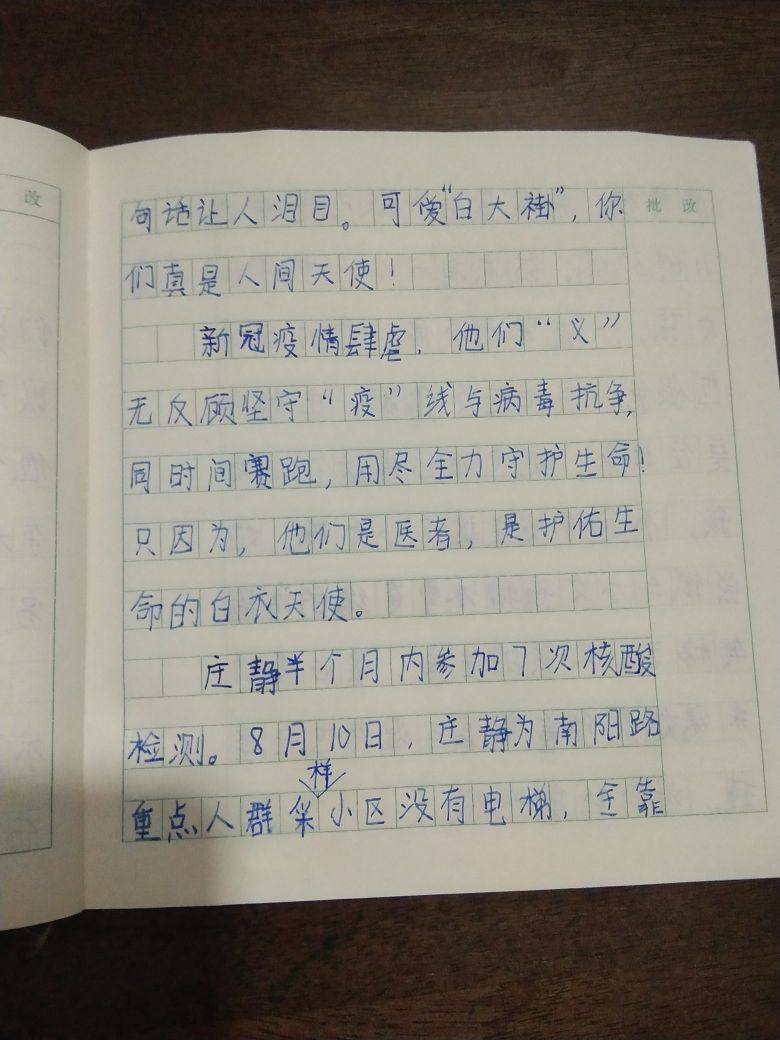 改
批改
句话让人泪目。可爱“白大褂”，你
们真是人间天使！
新冠疫情肆虐，他们“义”
无反顾坚守“疫”线与病毒抗争，
同时间赛跑，用尽全力守护生命！
只因为，他们是医者，是护佑生
命的白衣天使。
庄静半个月内参加7次核酸
检测。8月10日，庄静为南阳路
样
重点人群采小区没有电梯，全靠